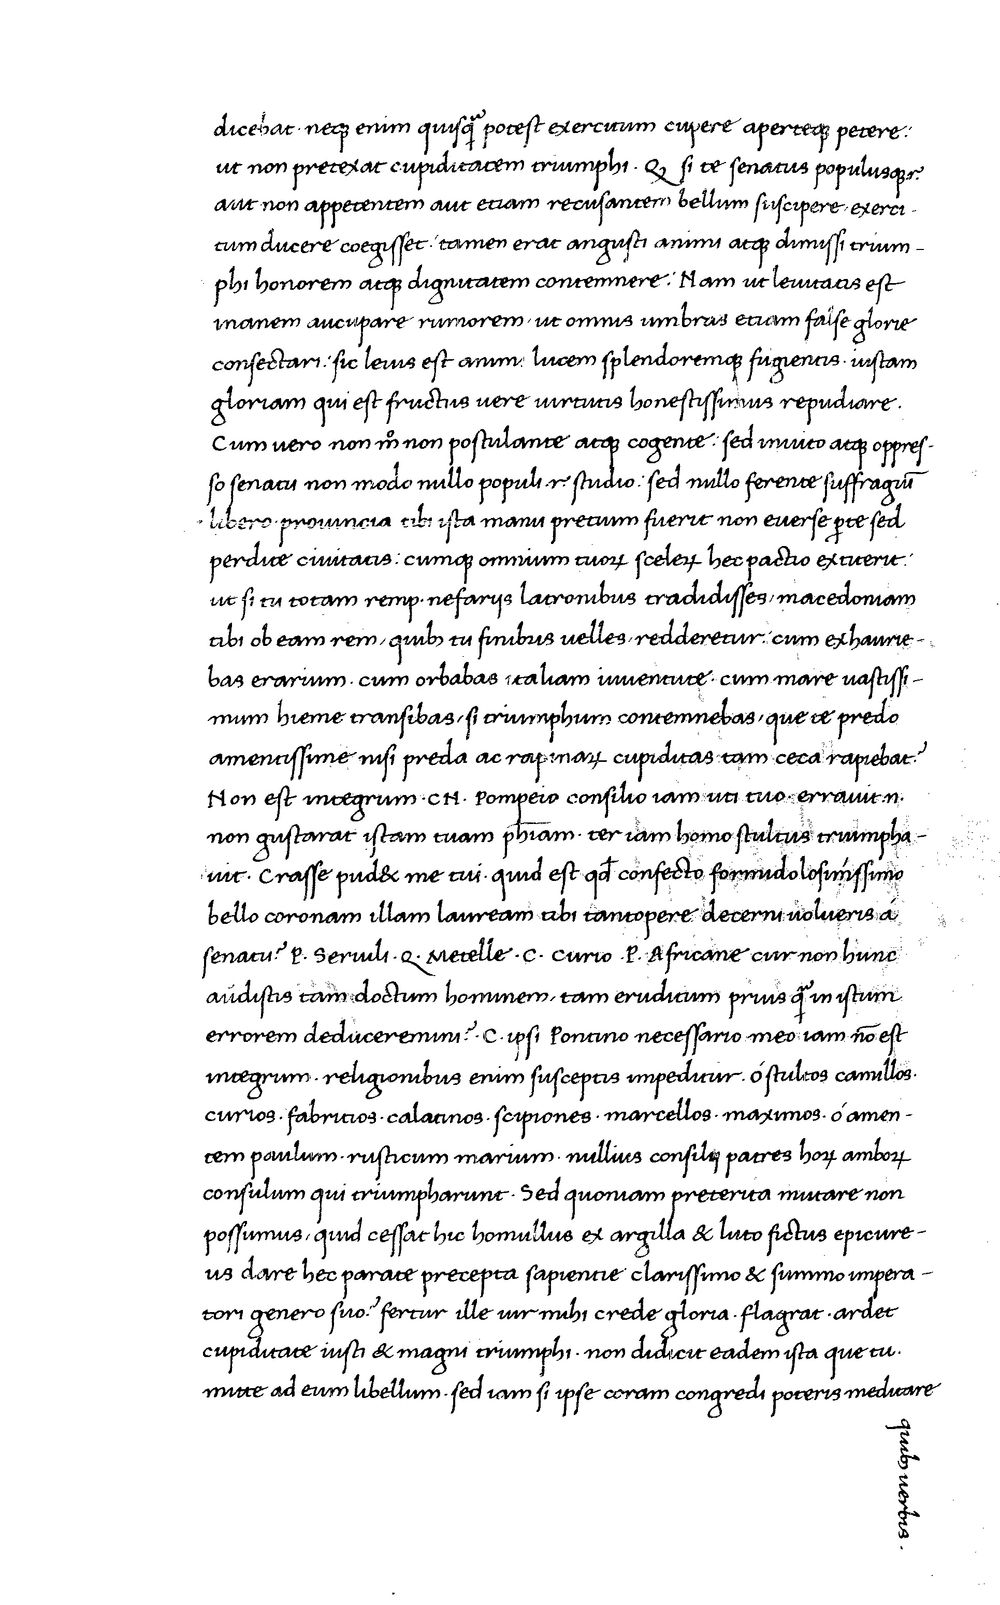 dicebat · neqꝫ enim quisq̃ potest exercitum cupere aperteqꝫ petere:
ut non pretexat cupiditatem triumphi · Q si te senatus populusqꝫ r̃
aut non appetentem aut etiam recusantem bellum suscipere · exerci-
tum ducere coegisset: tamen erat angusti animi atqꝫ dimissi trium-
phi honorem atqꝫ dignitatem contemnere: Nam ut leuitatis est
inanem aucupare rumorem · ut omnis umbras etiam false glorie
consectari: sic leuis est animi lucem splendoremqꝫ fugientis · iustam
gloriam qui est fructus uere uirtutis honestissimus repudiare .
Cum uero non m̊ non postulante atqꝫ cogente: sed inuito atqꝫ oppres-
so senatu non modo nullo populi · r · studio: sed nullo ferente suffragiū
libero · prouincia tibi ista manu pretium fuerit non euerse ꝑte sed
perdite ciuitatis: cumqꝫ omnium tuoꝝ sceleꝝ hec pactio extiterit:
ut si tu totam remp. nefarijs latronibus tradidisses, macedoniam
tibi ob eam rem, quibꝫ tu finibus uelles, redderetur: cum exhaurie-
bas erarium · cum orbabas italiam iuuentute · cum mare uastissi-
mum hieme transibas, si triumphum contemnebas, que te predo
amentissime nisi preda ac rapinaꝝ cupiditas tam ceca rapiebat?
Non est integrum · CN · Pompeio consilio iam uti tuo · errauit .n.
non gustarat istam tuam phīam · ter iam homo stultus triumpha-
uit · Crasse pud& me tui · quid est qd̄ confecto formidolosissimo
bello coronam illam lauream tibi tantopere decerni uolueris á
senatu? P. Seruili · Q. Metelle · C. Curio · P. Africane cur non hunc
audistis tam doctum hominem, tam eruditum prius q̃ in istum
errorem deduceremini? · C. ipsi Pontino necessario meo iam nō est
integrum · religionibus enim susceptis impeditur . ó stultos camillos ·
curios · fabritios · calatinos · scipiones · marcellos · maximos · ó amen-
tem paulum · rusticum marium · nullius consilij patres hoꝝ amboꝝ
consulum qui triumpharunt · Sed quoniam preterita mutare non
possumus, quid cessat hic homullus ex argilla & luto fictus epicure-
us dare hec parate precepta sapientie clarissimo & summo impera-
tori genero suo? fertur ille uir mihi crede gloria · flagrat · ardet
cupiditate iusti & magni triumphi · non didicit eadem ista que tu ·
mitte ad eum libellum · sed iam si ipse coram congredi poteris meditare
quibꝫ uerbis .